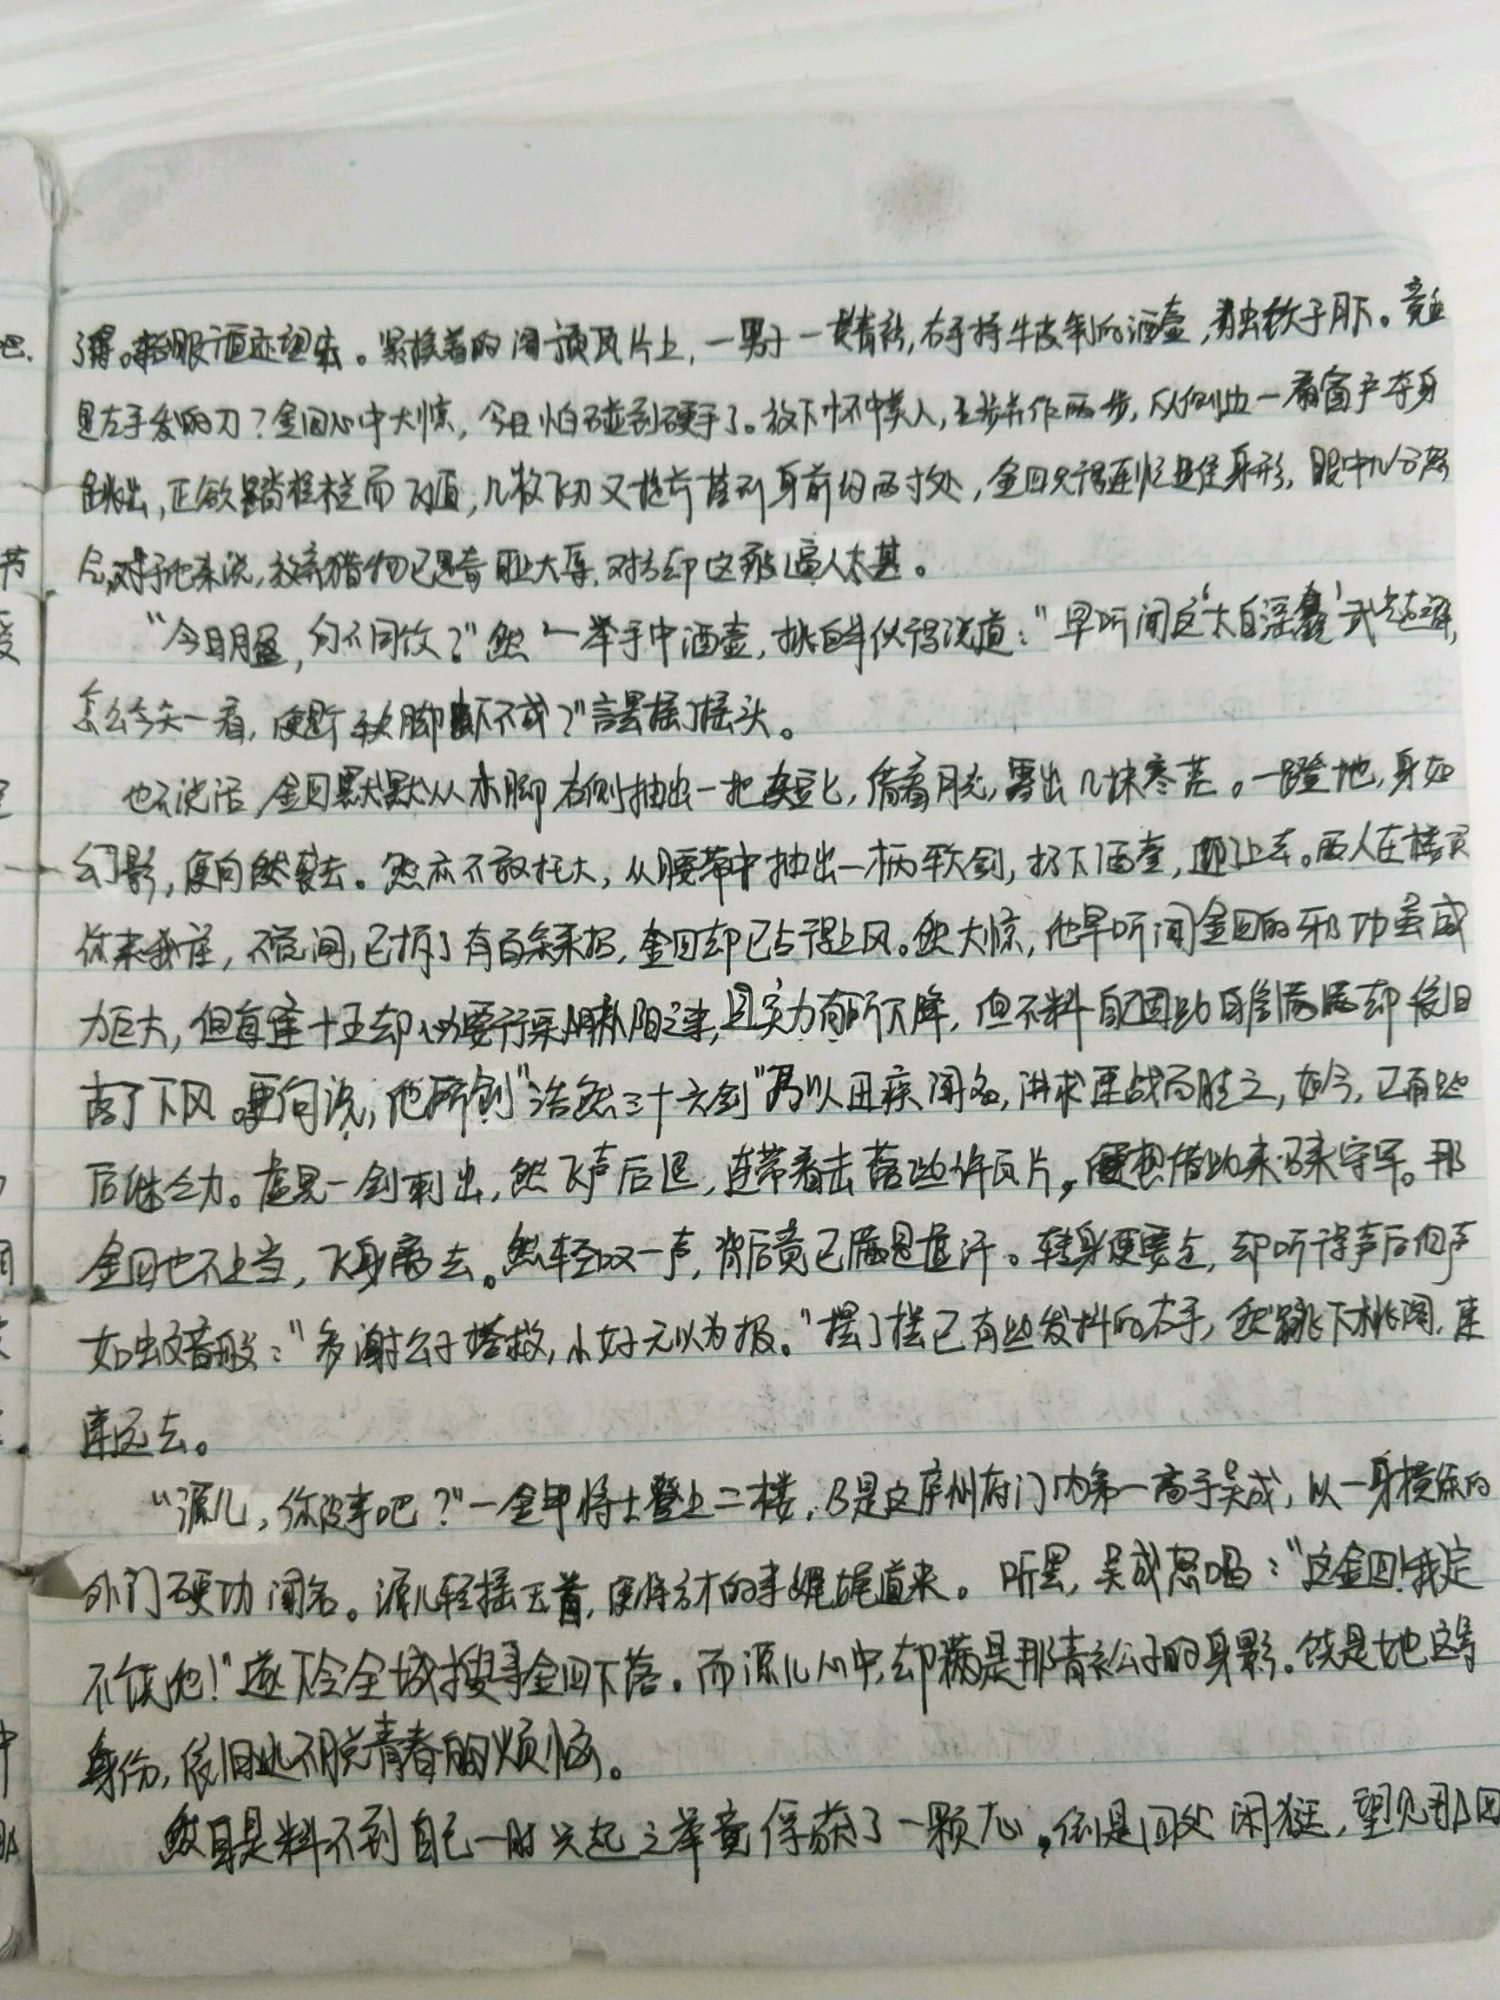 紧接着的阁顶瓦片上，一男子一袭青衫，右手持牛皮制的酒壶，独饮于月下。竟
是左手发的刀？金四心中大惊，今日怕碰到硬手了。放下怀中美人，三步并作两步，从侧边一扇窗户夺身
跳出，正欲踏栏而飞，几枚飞刀又提前落到身前约两寸处，金四只得连忙止住身形，眼中几分怒
对于他来说，放弃猎物已是奇耻大辱，对方却这般逼人太甚。
“今日月盈，何不同饮？”然一举手中酒壶，挑衅似得说道：“早听闻这‘太白淫魔’武
怎么今天一看，便是软脚虾不成？”言罢摇了摇头。
也不说话，金四默默从木脚右侧抽出一把短匕，借着月光，露出几抹寒芒。一蹬地，身如
幻影，便向然袭去。然亦不敢托大，从腰带中抽出一柄软剑，扔下酒壶，迎上去。两人在楼顶
你来我往，不觉间，已拆了有百余来招，金四却已占得上风。然大惊，他早听闻金四的邪功虽威
力巨大，但每逢十五却必要行采阴补阳之事，且实力有所下降，但不料自己自信满满却依旧
落了下风。要向说，他所创“浩然三十六剑”乃以迅疾闻名，讲求速战而胜之，如今，已有些
后继乏力。虚晃一剑刺出，然飞声后退，连带着击落些许瓦片，便想借此来引来守军。那
金四也不上当，飞身离去。然轻叹一声，背后竟已满是虚汗。转身便要走，却听得声后但声
如蚊音般：“多谢公子搭救，小女子无以为报。”摆了摆已有些发抖的右手，然跳下桃阁，速
速远去。
“源儿，你没事吧？”一金甲将士登上二楼，乃是这府州府门内第一高手吴成，以一身横练的
外门硬功闻名。源儿轻摇玉首，便将方才的事娓娓道来。听罢，吴成怒喝：“这金四！我定
不饶他！”遂下令全城搜寻金四下落。而源儿心中，却满是那青衣公子的身影。饶是她这等
身份，依旧逃不脱青春的烦恼。
然自是料不到自己一时兴起之举竟俘获了一颗芯，倒是四处闲逛，望见那